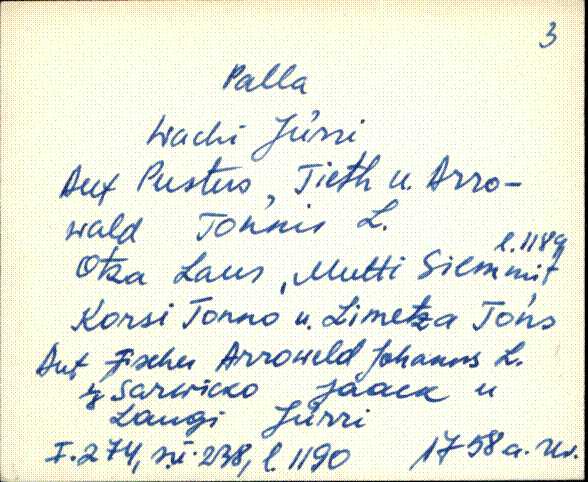 3
Palla
Wachi Jürri
Auf Pustus, Tieth u. Arro-
wald Tonnis L.
l. 1189
Otza Laur, Mutti Siem mit
Korsi Tonno u. Limetza Tons
Auf Fischer Arroweld Johanns L.
Sarwicko Jaack u
Laugi Jürri
I. 274, n. 238, l. 1190 1758 a. Rev.